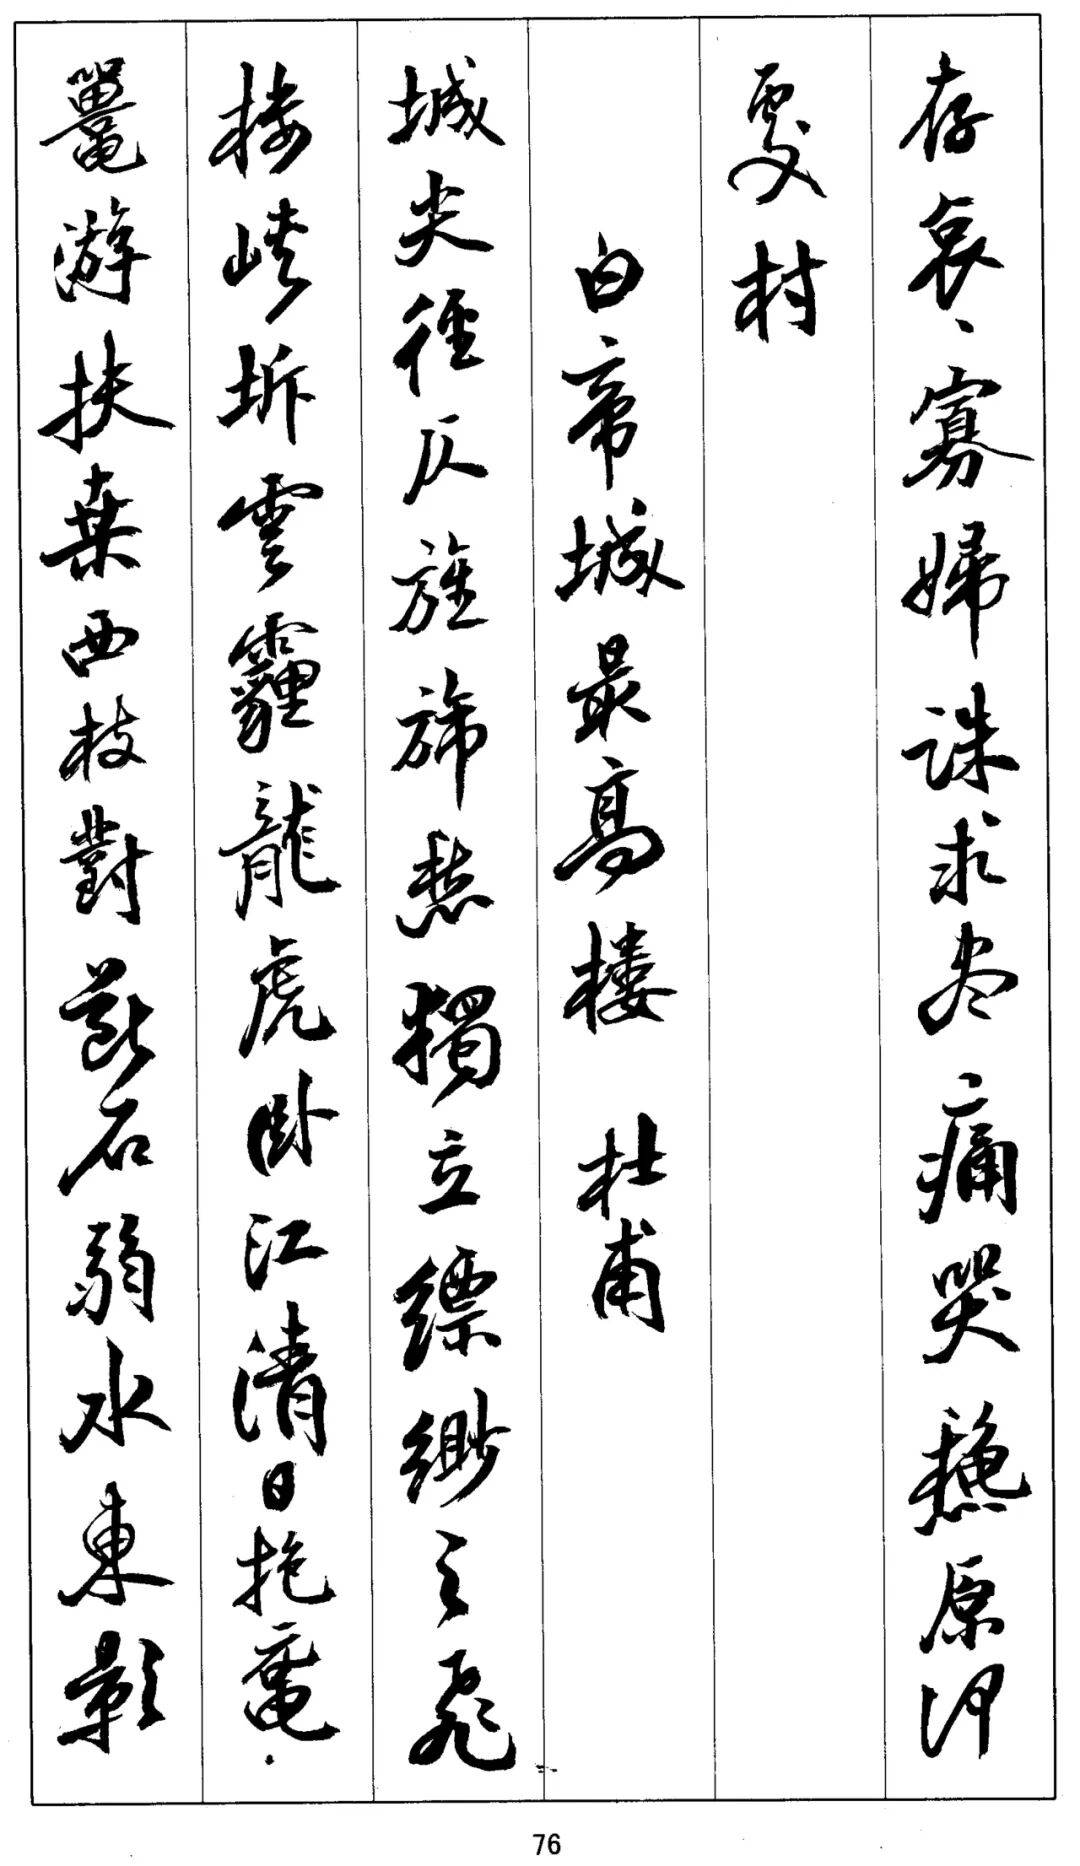 存哀々寡婦誅求尽痛哭穐原何
處村
白帝城最高樓 杜甫
城尖徑仄旌旆愁獨立縹緲之飛
樓峽坼雲霾龍虎卧江清日抱黿
鼉游扶桑西枝對斷石弱水東影
76